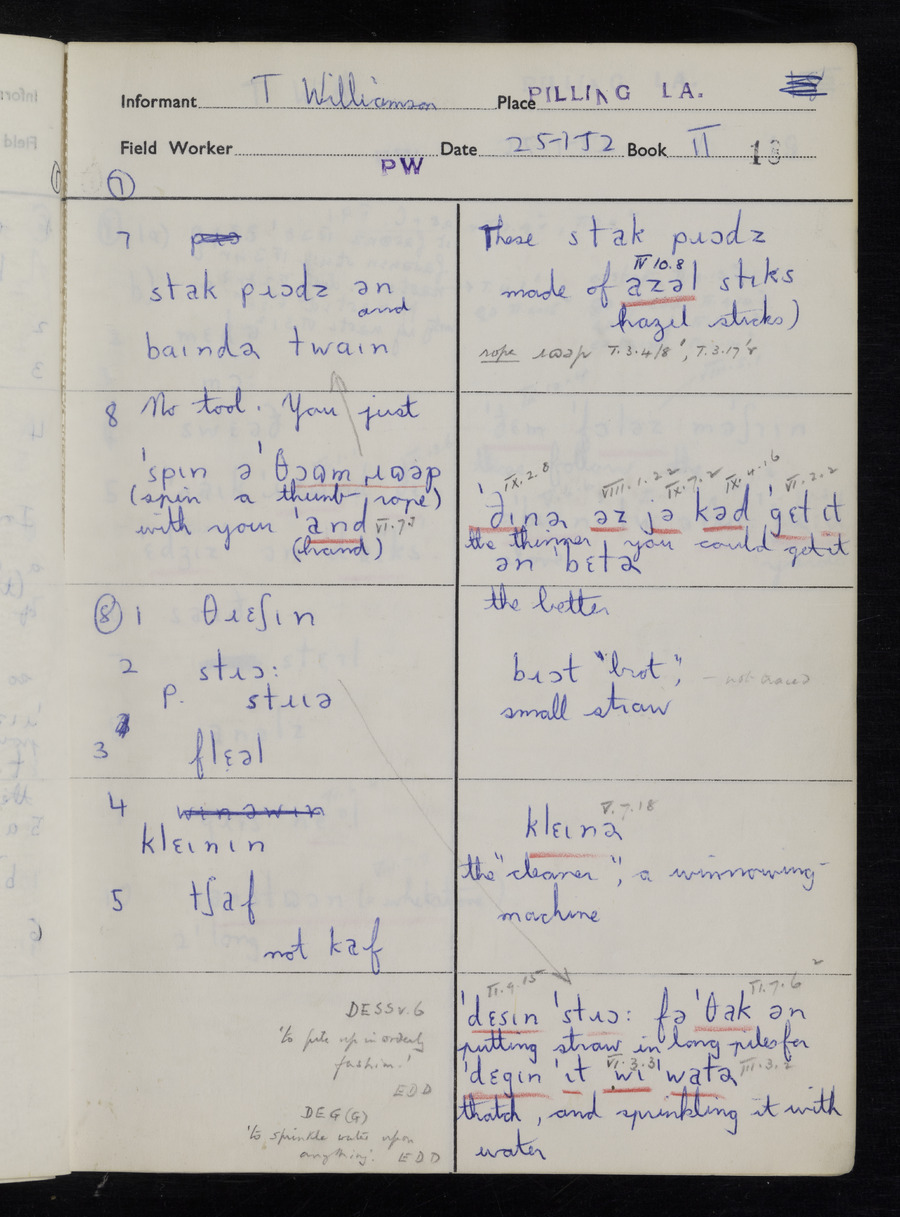 Informant T Williamson Place PILLING LA.
Field Worker PW Date 25-1-52 Book II 13
⑦
7
stak pɪədz ən
and
baində twain
These stak pɪədz
IV 10.8
made of azəl stɪks
hazel sticks)
rope ɹɷəp I.3.4/8', I.3.17'r
8 No tool. You just
'spɪn ə' θɔɑm ˌɹɷəp
(spin a thumb rope)
with your 'and VI.7.1
(hand)
IX.2.8 VIII.1.22 IX.7.2 IX.4.16 VI.2.2
'ðɪnə əz jə kəd 'gɛt ɪt
the thinner, you could get it
ən 'bɛtə
the better
⑧ 1 θɹɛʃɪn
2 stɹɔ:
P. stɹɪə
3 flɛəl
bɪət "brot",
small straw
4
klɛɪnɪn
5 tʃaf
not kaf
V.7.18
klɛɪnə
the "cleaner", a winnowing-
machine
DESS v. 6
'to pile up in orderly
fashion.'
EDD
DEG(G)
'to sprinkle water upon
anything'. EDD
II.9.15 II.7.6 2
'dɛsɪn 'stɹɔ: fə 'θak ən
putting straw in long piles for
VI.3.3 III.3.2
'dɛgɪn 'ɪt 'wɪ 'watə
thatch, and sprinkling it with
water